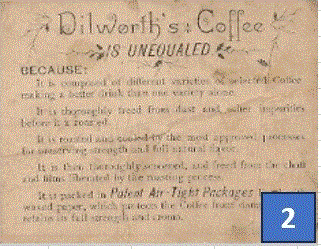 Dilworth's : Coffee
IS UNEQUALED
BECAUSE:
It is composed of different varieties of selected Coffee
making a better drink than one variety alone.
It is thoroughly freed from dust and other impurities
before it is roasted.
It is roasted and cooled by the most approved processes
for preserving strength and full natural flavor.
It is then thoroughly screened, and freed from the chaff
and films liberated by the roasting process.
It is packed in Patent Air-Tight Packages
waxed paper, which protects the Coffee from
retains its full strength and aroma.
2